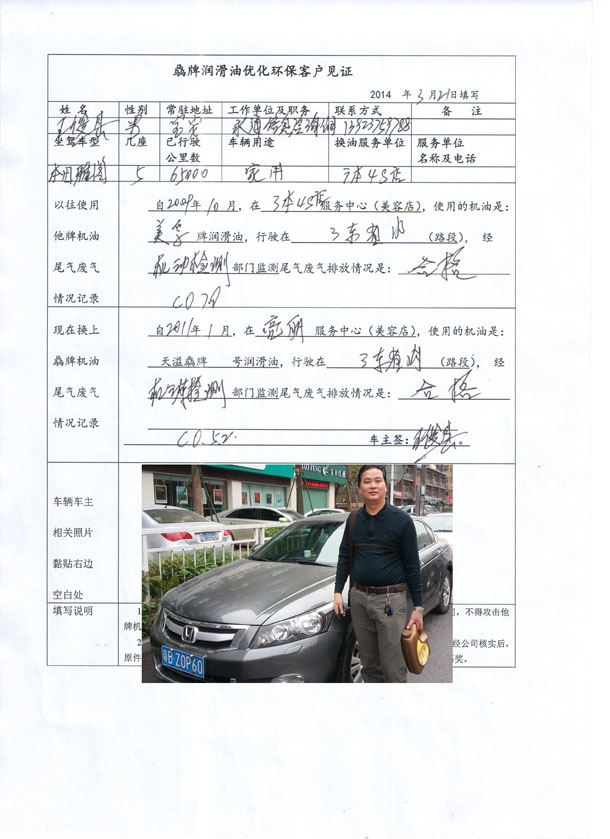 骉牌润滑油优化环保客户见证
2014 年 3 月 21 日填写
姓 名 性别 常驻地址 工作单位及职务 联系方式 备 注
男
坐驾车型 几座 已行驶公里数 车辆用途 换油服务单位 服务单位名称及电话
5 65000 家用 4S店
以往使用 自2009年10月，在 4S店 服务中心（美容店），使用的机油是：
他牌机油 美孚 牌润滑油，行驶在 广东省内 （路段），经
尾气废气 机动检测 部门监测尾气废气排放情况是： 合格
情况记录
现在换上 自2011年1月，在 服务中心（美容店），使用的机油是：
骉牌机油 天溢骉牌 号润滑油，行驶在 广东省内 （路段），经
尾气废气 检测 部门监测尾气废气排放情况是： 合格
情况记录
车主签：
车辆车主
相关照片
黏贴右边
空白处
LUO FENG
粤B·Z0P60
填写说明 1 ，不得攻击他
牌机
2 经公司核实后，
原件 奖。